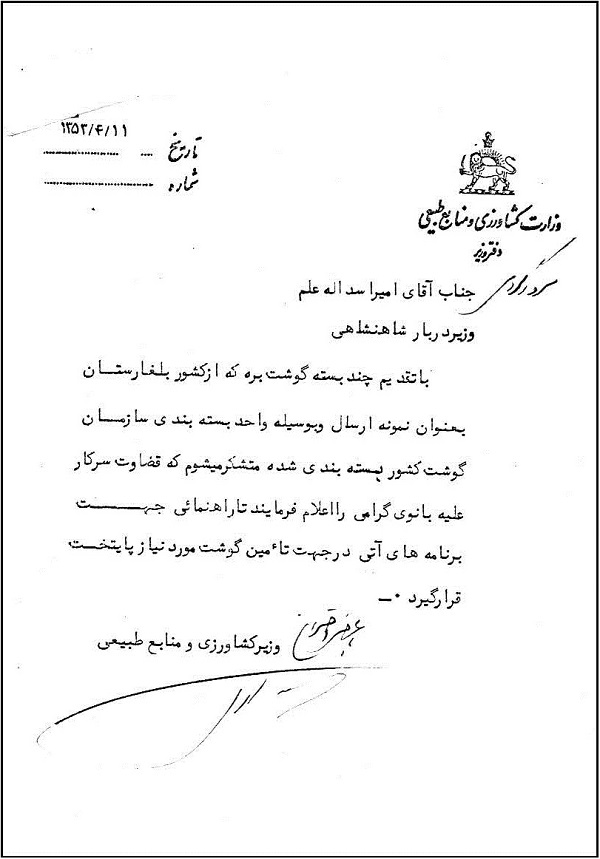 ۱۳۵۳/۴/۱۱
تاریخ
شماره
وزارت کشاورزی و منابع طبیعی
دفتر وزیر
جناب آقای امیر اسداله علم
وزیر دربار شاهنشاهی
با تقدیم چند بسته گوشت بره که از کشور بلغارستان
بعنوان نمونه ارسال وبوسیله واحد بسته بندی سازمان
گوشت کشور بسته بندی شده متشکرمیشوم که قضاوت سرکار
علیه بانوی گرامی را اعلام فرمایند تا راهنمائی جهت
برنامه های آتی درجهت تاٴمین گوشت مورد نیاز پایتخت
قرارگیرد ۰ـ
وزیرکشاورزی و منابع طبیعی